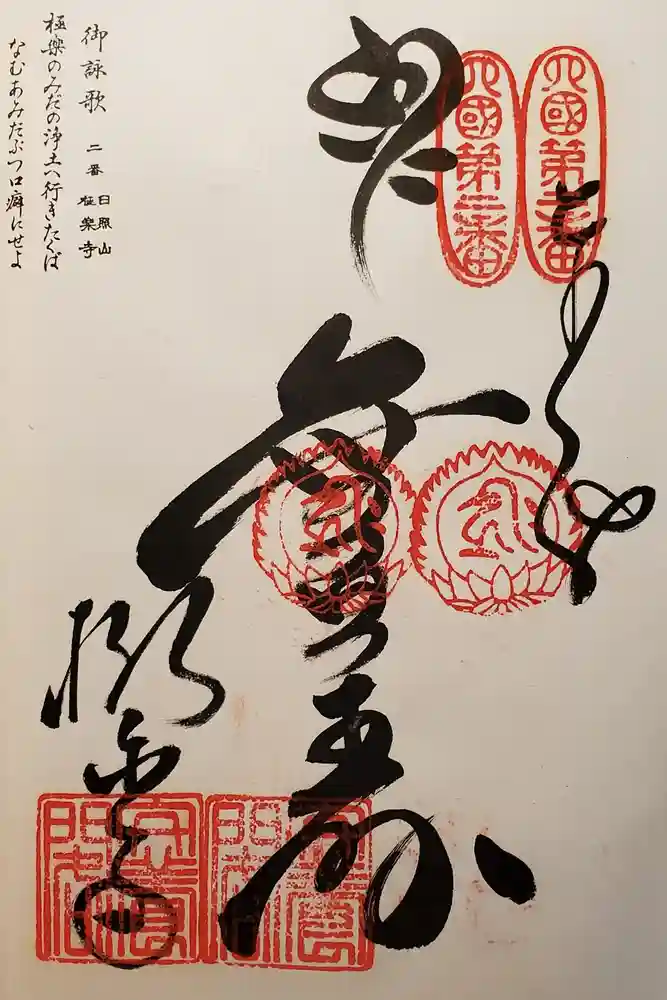 四國第二番
四國第二番
無量寿
極楽寺
御詠歌 二番 日照山 極楽寺
極樂のみだの浄土へ行きたくば
なむあみだぶつ口癖にせよ